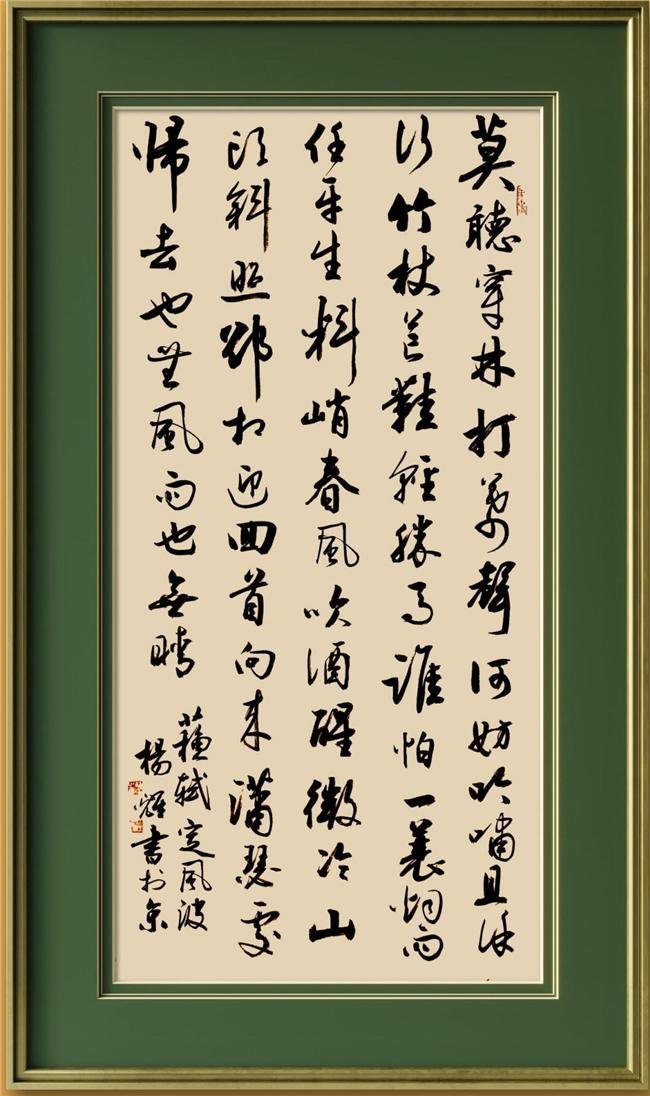 莫聽穿林打葉聲何妨吟嘯且徐
行竹杖芒鞋輕勝馬誰怕一蓑烟雨
任平生料峭春風吹酒醒微冷山
頭斜照卻相迎回首向來瀟瑟處
歸去也無風雨也無晴
蘇軾定風波
楊輝書於京